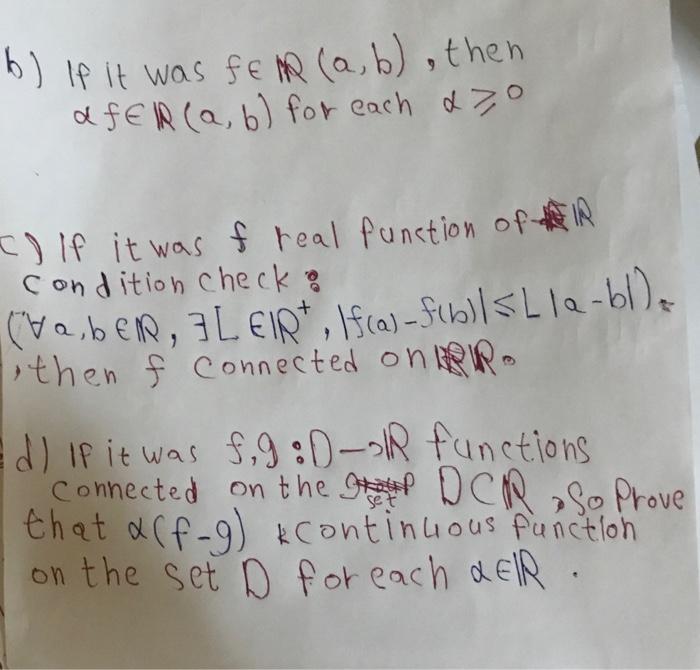 b) If it was f∈ℝ(a,b), then
αf∈ℝ(a,b) for each α≥0
c) If it was f real function of ℝ
condition check:
(∀a,b∈ℝ, ∃L∈ℝ⁺, |f(a)-f(b)|≤L|a-b|).
,then f connected on ℝ.
d) If it was f,g:D→ℝ functions
connected on the set D⊂ℝ, So Prove
that α(f-g) continuous function
on the set D for each α∈ℝ.